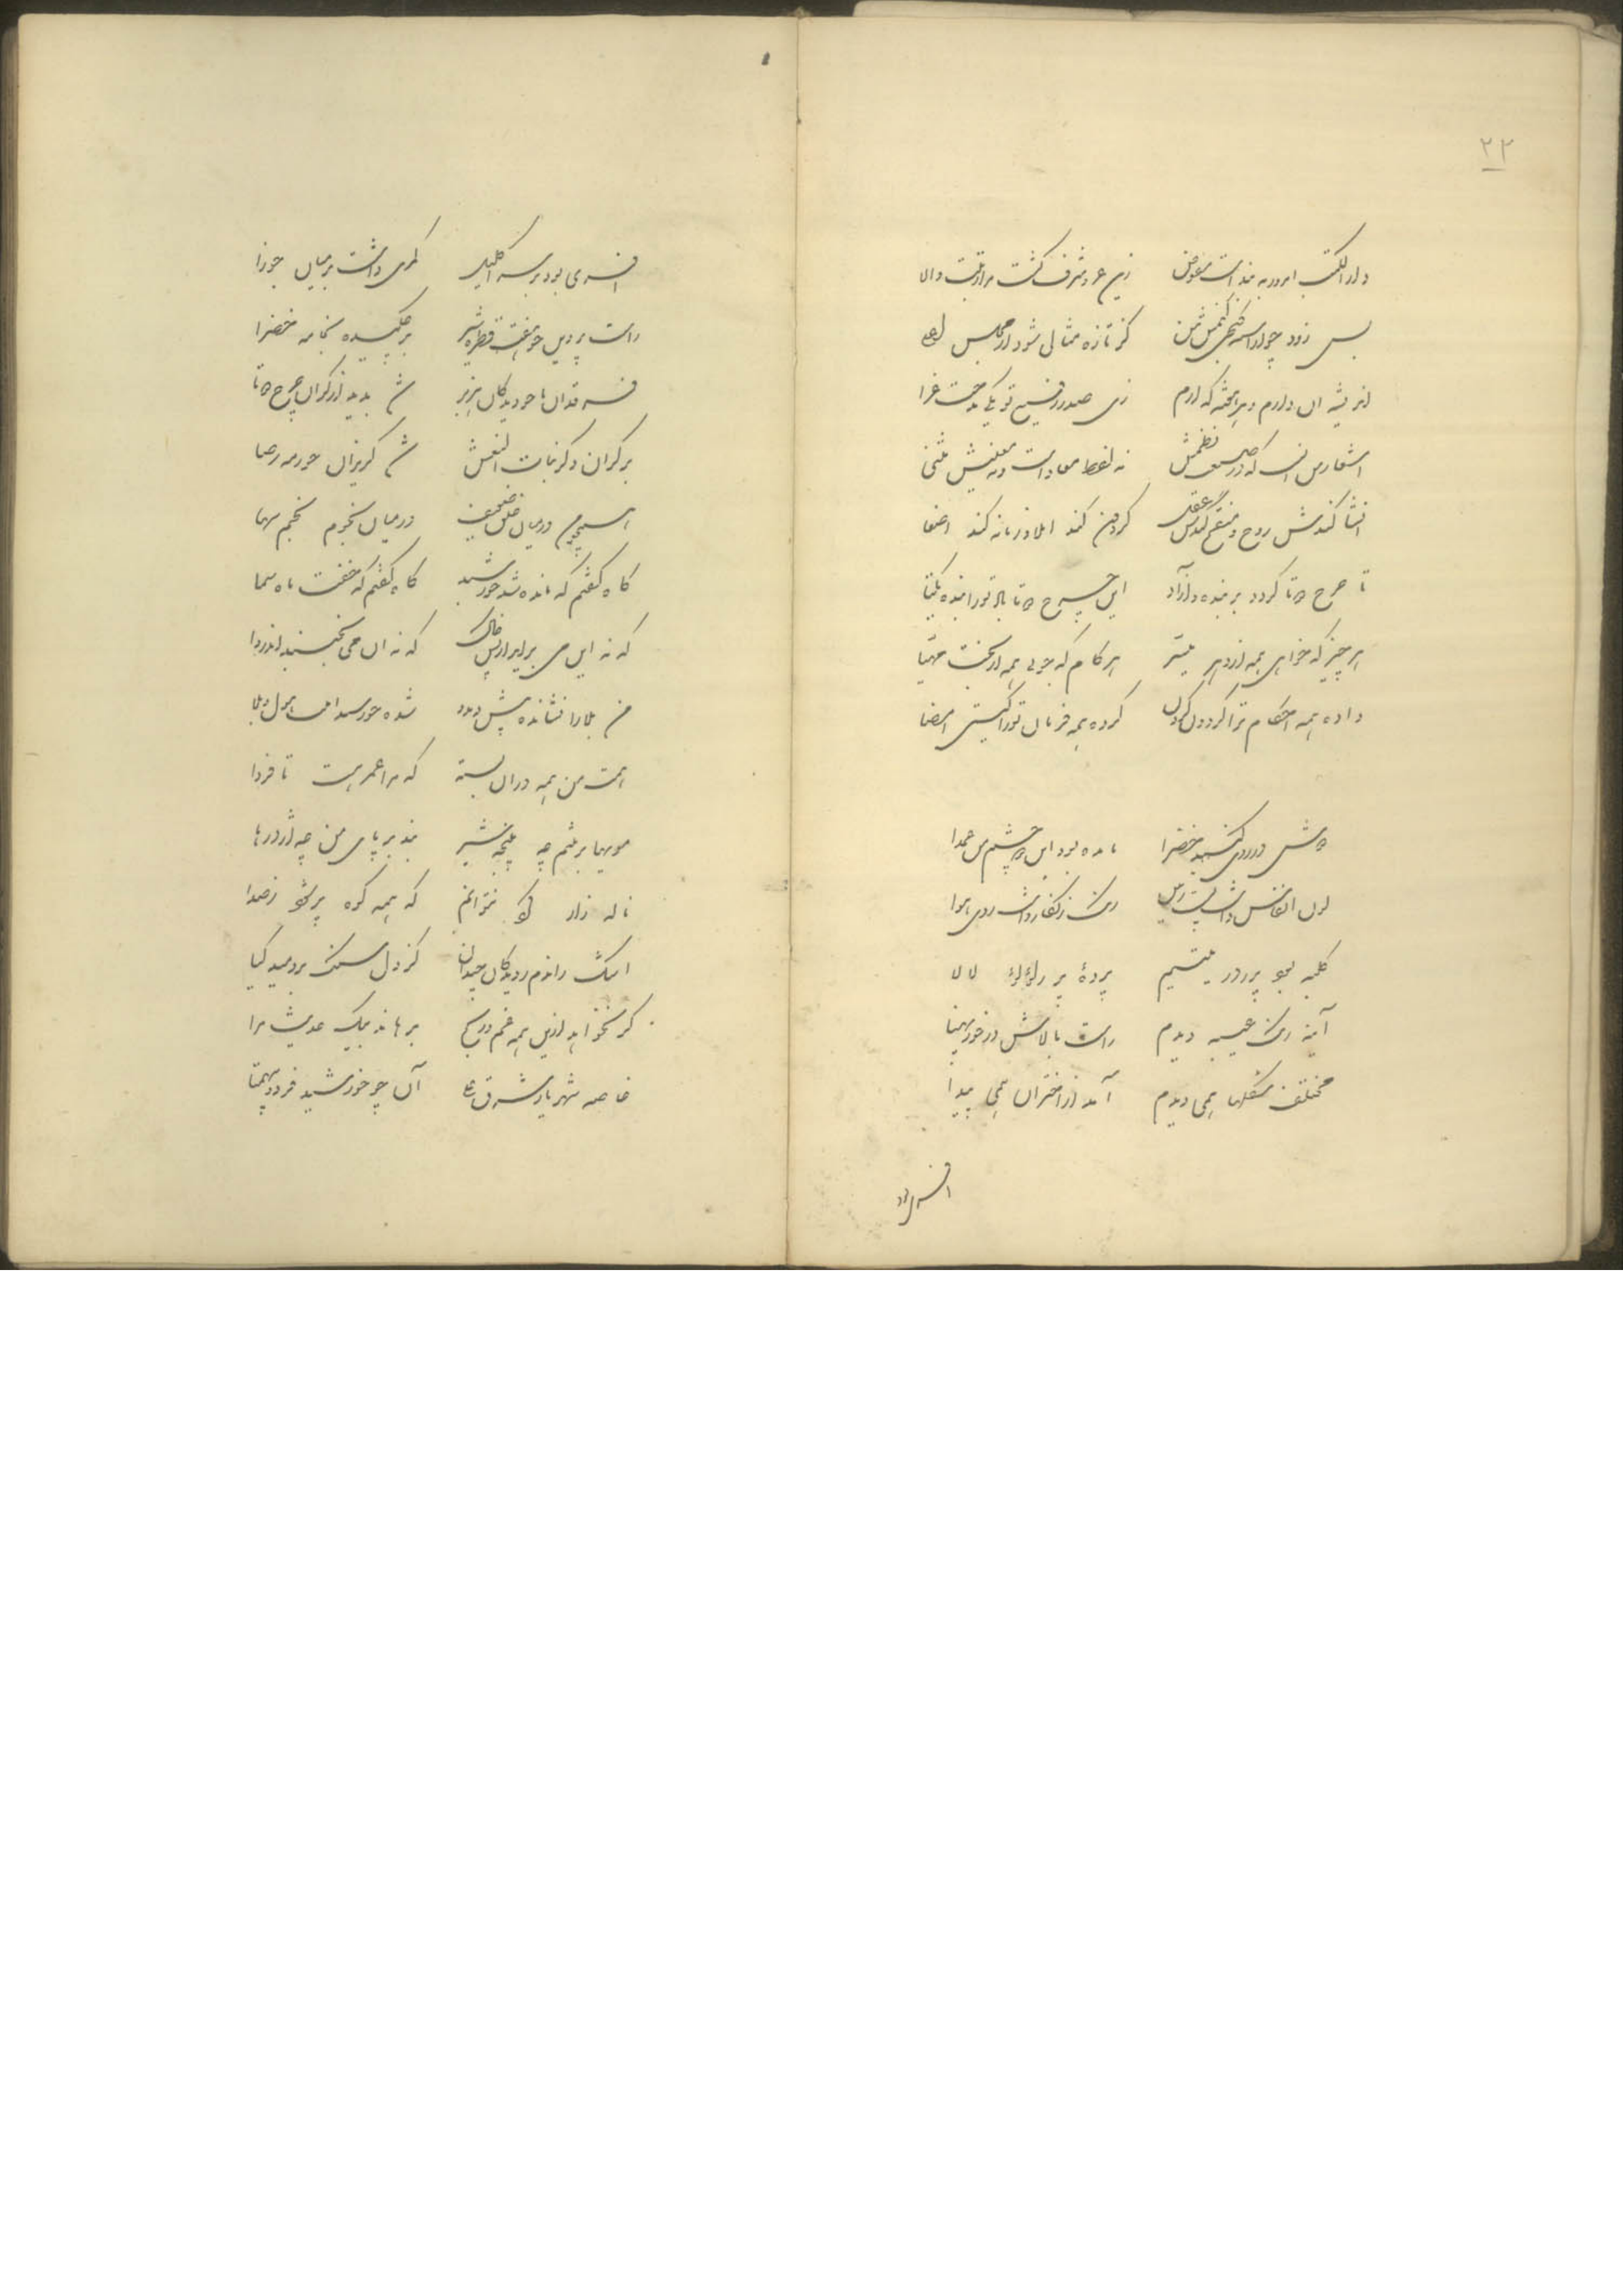 ۲۲
دار الکتب امروز به بنده است مفوض زین عز و شرف گشت مرا رتبت والا
بس زود چو آراسته گنجی کنمش من گر تازه مثالی شود از مجلس اعلا
اندیشه آن دارم و هر هفته که آرم زی صدر رفیع تو یکی مدحت غرا
اشعار من آنست که در صنعت نظمش نه لفظ معاد است و نه معنیش مثنی
انشا کندش روح و منقح کندش عقل گردون کند املا و زمانه کند اصغا
تا چرخ دوتا گردد بر بنده و آزاد این چرخ دوتا باد تو را بنده یکتا
هر چیز که خواهی همه از دهر میسر هر کام که جویی همه از بخت مهیا
داده همه احکام ترا گردون گردن کرده همه فرمان تو را گیتی امضا
دوش در روی گنبد خضرا مانده بود این دو چشم من عمدا
لون انقاس داشت پشت زمین رنگ زنگار داشت روی هوا
کلبه بود پر در یتیم پرده پر ز لؤلؤ لالا
آینه رنگ عیبه دیدم راست بالاش در خور پهنا
مختلف شکلها همی دیدم آمد از اختران همی پیدا
افسری بود
افسری بود بر سر اکلیل کمری داشت بر میان جوزا
راست پروین چو هفت قطره شیر بر چکیده به جامه خضرا
فرقدان با دو دیدگان هژبر شد پدید از کران چرخ دوتا
بر کران دگر بنات النعش شد گریزان
همچو من در میان خلق ضعیف در میان نجوم نجم سها
گاه گفتم که مانده شد خورشید گاه گفتم که خفت ماه سما
که نه این می برآید از پس خاک که نه آن می بجنبد اندروا
من بلا را نشانده پیش
همت من همه در آن بسته که مرا عمر هست تا فردا
مویها بر تنم چو پنجه شیر بند بر پای من چو اژدرها
ناله زار کرد نتوانم که همه کوه پر شود ز صدا
اشک راندم ز دیدگان چندان کز دل سنگ بردمید گیا
گر نخواهد از این همه غم و رنج برهاند بیک حدیث مرا
خاصه شهریار شرق علی آن چو خورشید فرد و بی همتا